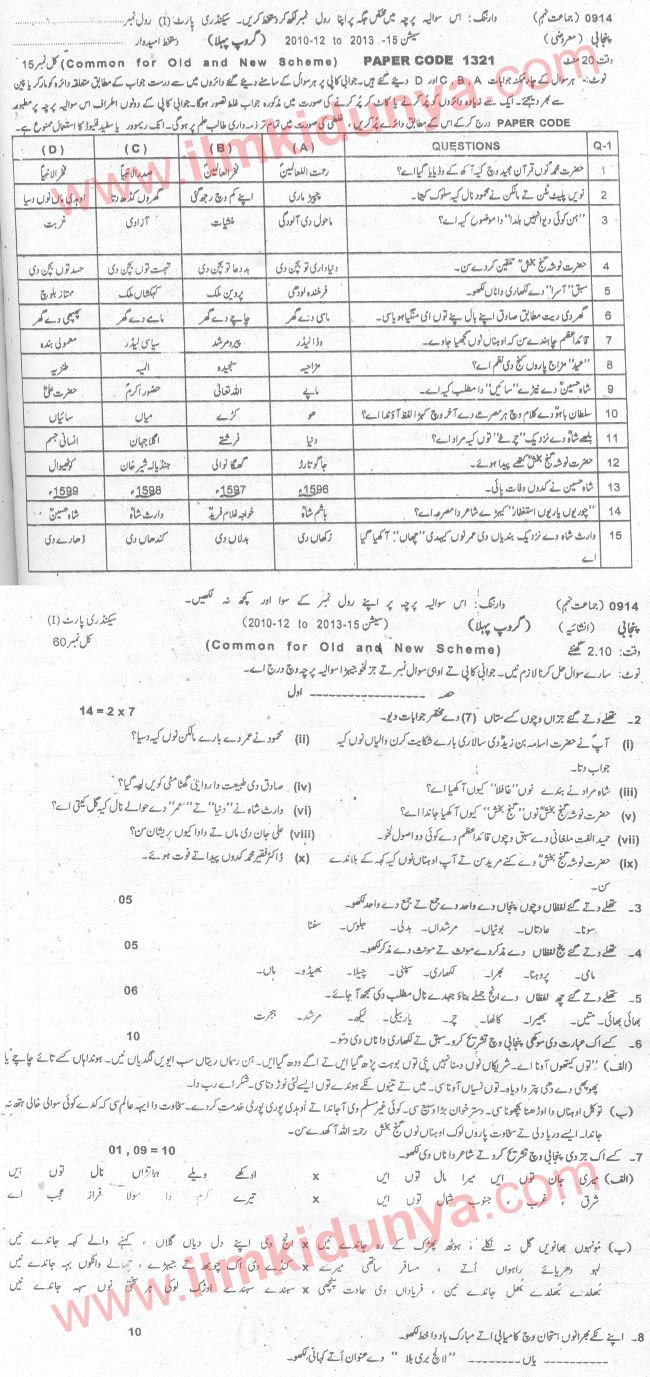 0914 (جماعت نہم) وارننگ: اس سوالیہ پرچہ میں مختص جگہ پر اپنا رول نمبر لکھ کر دستخط کریں۔ سیکنڈری پارٹ (I) رول نمبر
پنجابی (معروضی) (گروپ پہلا) سیشن 2010-12 to 2013-15 دستخط امیدوار
وقت 20 منٹ PAPER CODE 1321 (Common for Old and New Scheme) کل نمبر 15
نوٹ: ہر سوال کے چار ممکنہ جوابات A، B، C اور D دیئے گئے ہیں۔ جوابی کاپی پر ہر سوال کے سامنے دیئے گئے دائروں میں سے درست جواب کے مطابق متعلقہ دائرہ کو مارکر یا پین
سے بھر دیجئے۔ ایک سے زیادہ دائروں کو پُر کرنے یا کاٹ کر پُر کرنے کی صورت میں مذکورہ جواب غلط تصور ہوگا۔ جوابی کاپی کے دونوں اطراف اس سوالیہ پرچہ پر مطبوعہ
PAPER CODE درج کر کے اس کے مطابق دائرے پُر کریں، غلطی کی صورت میں تمام تر ذمہ داری طالب علم پر ہوگی۔ انک ریموور یا سفید فلیوڈ کا استعمال ممنوع ہے۔
Q-1 QUESTIONS (A) (B) (C) (D)
1 حضرت محمدؐ نوں قرآن مجید وچ کیہ آکھ کے وڈیایا گیا اے؟ رحمت اللعالمین فخر العالمین صدر الانبیا فخر الانبیا
2 نویں پلیٹ ٹٹن تے مالکن نے محمود نال کیہ سلوک کیتا۔ چپیڑ ماری اپنے کم وچ رجھ گئی گھروں کڈھ دتا اوہدی ماں نوں دسیا
3 "ہن کوئی دیوا نہیں بلدا" دا موضوع کیہ اے؟ ماحول دی آلودگی منشیات آزادی غربت
4 حضرت نوشہ گنج بخشؒ تلقین کردے سن۔ دنیا داری تو بچن دی بد دعا توں بچن دی تہمت توں بچن دی حسد توں بچن دی
5 سبق "آسرا" دے لکھاری دا ناں لکھو۔ فرخندہ لودھی پروین ملک کہکشاں ملک ممتاز بلوچ
6 گھر دی ریت مطابق صادق اپنے بال پنے توں ای منگیا ہویا سی۔ ماسی دے گھر چاچے دے گھر مامے دے گھر پھپھی دے گھر
7 قائداعظم چاہندے سن کہ اوہناں نوں سمجھیا جاوے۔ وڈا لیڈر پیر و مرشد سیاسی لیڈر معمولی بندہ
8 "عید" مزاج پاروں کنج دی نظم اے؟ مزاحیہ سنجیدہ المیہ طنزیہ
9 شاہ حسینؒ دے نیڑے "سائیں" دا مطلب کیہ اے۔ ماپے اللہ تعالیٰ حضور اکرمؐ حضرت علیؓ
10 سلطان باہوؒ دے کلام وچ ہر مصرعے دے آخر وچ کیہڑا لفظ آؤندا اے؟ ھو کڑے میاں سائیاں
11 بلھے شاہؒ دے نزدیک "چرخے" توں کیہ مراد اے؟ دنیا فرشتے اگلا جہان انسانی جسم
12 حضرت نوشہ گنج بخشؒ کتھے پیدا ہوئے۔ جاگو تارڑ گھگا نوالی جنڈیالہ شیر خان کوٹھیوال
13 شاہ حسین نے کدوں وفات پائی۔ 1596ء 1597ء 1598ء 1599ء
14 "چوریوں یاریوں استغفار" کیہڑے شاعر دا مصرعہ اے؟ ہاشم شاہ خواجہ غلام فریدؒ وارث شاہؒ شاہ حسینؒ
15 وارث شاہ دے نزدیک بندیاں دی عمر نوں کیہدی "چھاں" آکھیا گیا اے رُکھاں دی بدلاں دی کندھاں دی ڈھارے دی
0914 (جماعت نہم) وارننگ: اس سوالیہ پرچہ پر اپنے رول نمبر کے سوا اور کچھ نہ لکھیں۔
پنجابی (انشائیہ) (گروپ پہلا) (سیشن 2010-12 to 2013-15) سیکنڈری پارٹ (I)
وقت: 2.10 گھنٹے (Common for Old and New Scheme) کل نمبر 60
نوٹ: سارے سوال حل کرنا لازم نیں۔ جوابی کاپی تے اوہی سوال نمبر تے جز لکھو جیہڑا سوالیہ پرچہ وچ درج اے۔
حصہ اول
2۔ تھلے دتے گئے جزاں وچوں کسے ستاں (7) دے مختصر جوابات دیو۔ 14 = 2 x 7
(i) آپؐ نے حضرت اسامہ بن زیدؓ دی سالاری بارے شکایت کرن والیاں نوں کیہ جواب دتا۔ (ii) محمود نے عمر دے بارے مالکن نوں کیہ دسیا؟
(iii) شاہ مراد نے بندے نوں "غافلا" کیوں آکھیا اے؟ (iv) صادق دی طبیعت دا روایتی گھٹا مٹی کویں لیہہ گیا؟
(v) حضرت نوشہ گنج بخشؒ نوں "گنج بخش" کیوں آکھیا جاندا اے؟ (vi) وارث شاہ نے "دنیا" تے "عمر" دے حوالے نال کیہ گل کیتی اے؟
(vii) حمید الفت ملغانی دے سبق وچوں قائداعظم دے کوئی دو اصول لکھو۔ (viii) علی جان دی ماں تے دادا کیوں پریشان سن؟
(ix) حضرت نوشہ گنج بخشؒ دے کنے مرید سن تے آپ اوہناں نوں کیہ کہہ کے بلاندے سن۔ (x) ڈاکٹر فقیر محمد کدوں پیدا تے فوت ہوئے۔
3۔ تھلے دتے گئے لفظاں وچوں پنجاں دے واحد دے جمع تے جمع دے واحد لکھو۔ 05
سوٹا۔ عادتاں۔ بوٹیاں۔ مرشداں۔ بدلی۔ جلوس۔ سفنا
4۔ تھلے دتے گئے پنج لفظاں دے مذکر دے مونث تے مونث دے مذکر لکھو۔ 05
مامی۔ پروہنا۔ بھرا۔ لکھاری۔ سپنی۔ چیلا۔ بھیڈو۔ ماں۔
5۔ تھلے دتے گئے چھ لفظاں دے انج جملے بناؤ جیہدے نال مطلب دی سمجھ آ جائے۔ 06
بھائی بھائی۔ متیں۔ بھیرا۔ کالھا۔ چر۔ یار بیلی۔ لیکھ۔ مرشد۔ ہجرت
6۔ کسے اک عبارت دی سوکھی پنجابی وچ تشریح کرو۔ سبق تے لکھاری دا ناں وی دسو۔ 10
(الف) "توں کیتھوں آونا اے۔ شریکاں نوں دسنا نہیں پئی توں بوہت پڑھ گیا ایں تے اگے ودھ گیا ایں۔ ہن رسماں ریتاں سب ایویں لگدیاں نیں۔ ہونداہاں کسے تائے چاچے یا
پھوپھی دے دھی پتر دا ویاہ۔ توں نسیاں آونا سی۔ میں تے تینوں نکے ہوندے توں ایسے لئی ٹوڑنا سی۔ شکر اے رب دا۔
(ب) توکل اوہناں دا اوڑھنا بچھونا سی۔ دستر خوان بڑا وسیع سی۔ کوئی غیر مسلم وی آ جاندا تے اوہدی پوری پورتی خدمت کردے۔ سخاوت دا ایہہ عالم سی کہ کدے کوئی سوالی خالی ہتھ نہ
جاندا۔ ایسے دریا دلی تے سخاوت پاروں لوک اوہناں نوں گنج بخش رحمتہ اللہ آکھدے سن۔
7۔ کسے اک جز دی پنجابی وچ تشریح کرو تے شاعر دا ناں وی لکھو۔ 01 , 09 = 10
(الف) میری جان توں ایں میرا مال توں ایں x اوکھے ویلے ہمانڑاں نال توں ایں
شرق، غرب، جنوب شمال توں ایں x تیرے کرم دا مولا فراز عجب اے
(ب) مونہوں بھانویں گل نہ نکلے، ہوٹھ پھڑک کے رہ جاندے نیں x انج وی اپنے دل دیاں گلاں، کہنے والے کہہ جاندے نیں
لہو دھریائے راہواں اُتے، مسافر ساتھی میرے x کنڈے دی اک چوبھ تے جیہڑے، چھالے وانگوں بہہ جاندے نیں
بھلدے بُھلدے بھل جاندے نین، فریاداں دی عادت پنچھی x سہندے سہندے اوڑک لوکی ہر سختی نوں سہہ جاندے نیں
8۔ اپنے نکے بھرا نوں امتحان وچ کامیابی اُتے مبارک باد دا خط لکھو۔ 10
یاں "لالچ بری بلا" دے عنوان اُتے کہانی لکھو۔
www.ilmkidunya.com
www.ilmkidunya.com